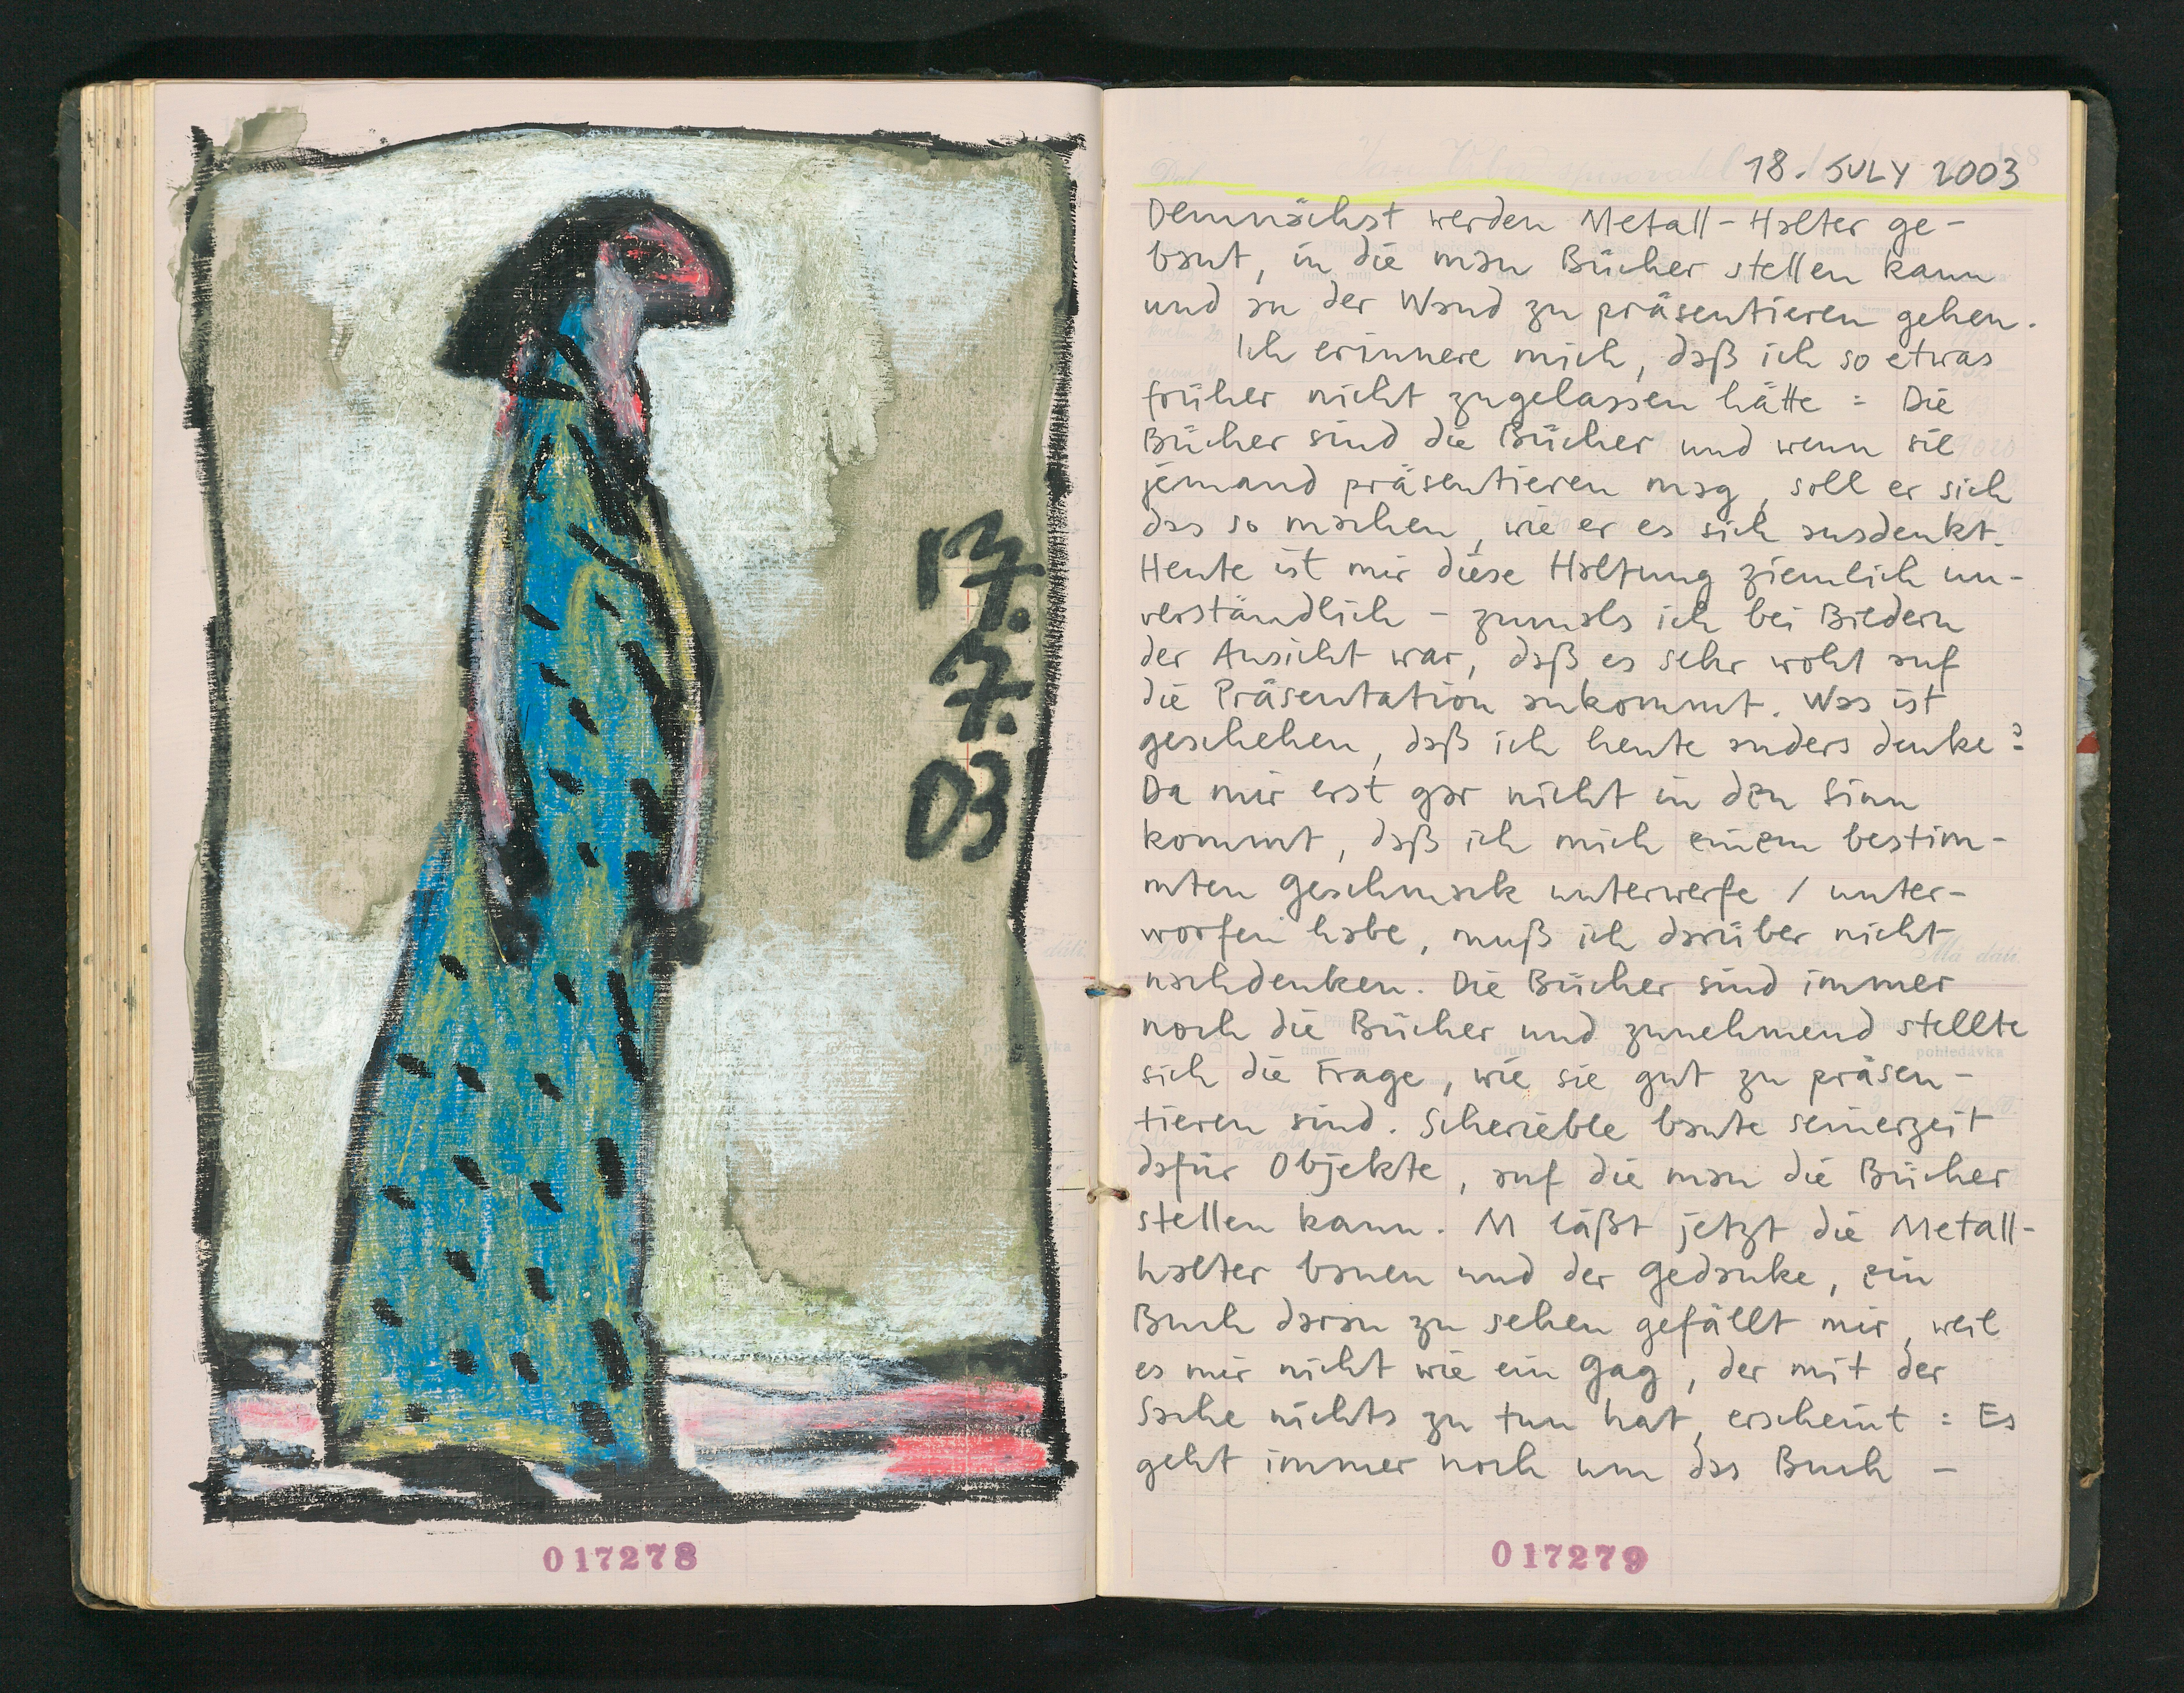 17.
7.
03
017278
18. JULY 2003
Demnächst werden Metall-Halter ge-
baut, in die man Bücher stellen kann
und an der Wand zu präsentieren gehen.
Ich erinnere mich, daß ich so etwas
früher nicht zugelassen hätte : Die
Bücher sind die Bücher und wenn sie
jemand präsentieren mag, soll er sich
das so machen, wie er es sich ausdenkt.
Heute ist mir diese Haltung ziemlich un-
verständlich - zumals ich bei Bildern
der Ansicht war, daß es sehr wohl auf
die Präsentation ankommt. Was ist
geschehen, daß ich heute anders denke?
Da mir erst gar nicht in den Sinn
kommt, daß ich mich einem bestim-
mten Geschmack unterwerfe / unter-
worfen habe, muß ich darüber nicht
nachdenken. Die Bücher sind immer
noch die Bücher und zunehmend stellte
sich die Frage, wie sie gut zu präsen-
tieren sind. Scherieble baute seinerzeit
dafür Objekte, auf die man die Bücher
stellen kann. M läßt jetzt die Metall-
halter bauen und der Gedanke, ein
Buch daran zu sehen gefällt mir, weil
es mir nicht wie ein Gag, der mit der
Sache nichts zu tun hat, erscheint : Es
geht immer noch um das Buch -
pohledávka
017279